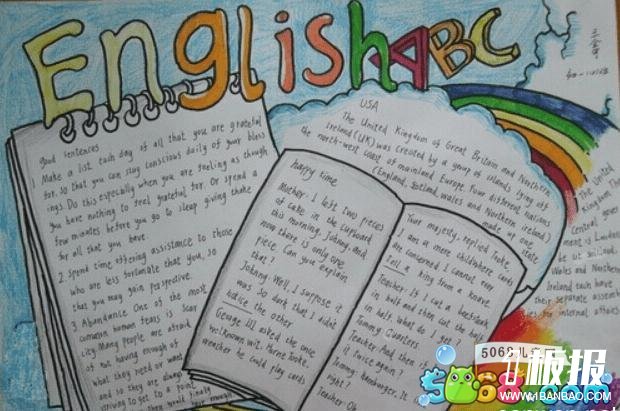 English ABC
good sentences
1 Make a list each day of all that you are grateful
for, so that you can stay conscious daily of your bless
ings. Do this especially when you are feeling as though
you have nothing to feel grateful for. Or spend a
few minutes before you go to sleep giving thanks
for all that you have
2. Spend time offering assistance to those
who are less fortunate than you, so
that you may gain perspective.
3. Abundance One of the most
common human fears is scar
city. Many people are afraid
of not having enough of
what they need or want
and so they are always
striving to get to a point
USA
The United Kingdom of Great Britain and Northern
Ireland (UK) was created by a group of islands lying off
the north-west coast of mainland Europe. Four different nations
(England, Scotland, Wales and Northern Ireland)
made up one
state
happy time
Mother: I left two pieces
of cake in the cupboard
this morning, Johnny and
now there is only one
piece. Can you explain
that?
Johnny: Well, I suppose it
was so dark that I didn't
notice the other
George III asked the once
wellknown wit. Horne Tooke,
wheather he could play cards
Your majesty, replied Tooke,
I am a mere child where cards
are concerned I cannot even
Tell a king from a knave.
Teacher: If I cut a beefsteak
in half and then cut the half
in half, what do I get?
Tommy: Quarters
Teacher: And then
it twice again?
Tommy: Hamburger. It
right?
Teacher: Ok
The United
Kingdom The
Central gover
ment is London
Wales and Northern
Ireland each have
their separate assemb
lies for internal affairs
5068儿
5068.com
板报
WWW.1BANBAO.COM